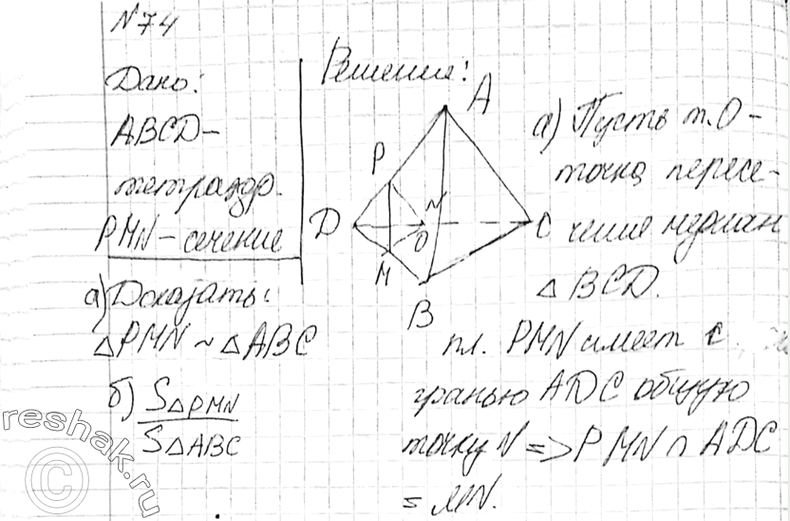 №74
Дано:
ABCD –
тетраэдр.
PMN – сечение
а) Доказать:
△PMN ~ △ABC
б) S△PMN
S△ABC
Решение:
A
P
N
D
O
C
M
B
а) Пусть т. O –
точка пересе-
чение медиан
△ BCD.
пл. PMN имеет с
гранью ADC общую
точку N => PMN ∩ ADC
= MN.
reshak.ru
©